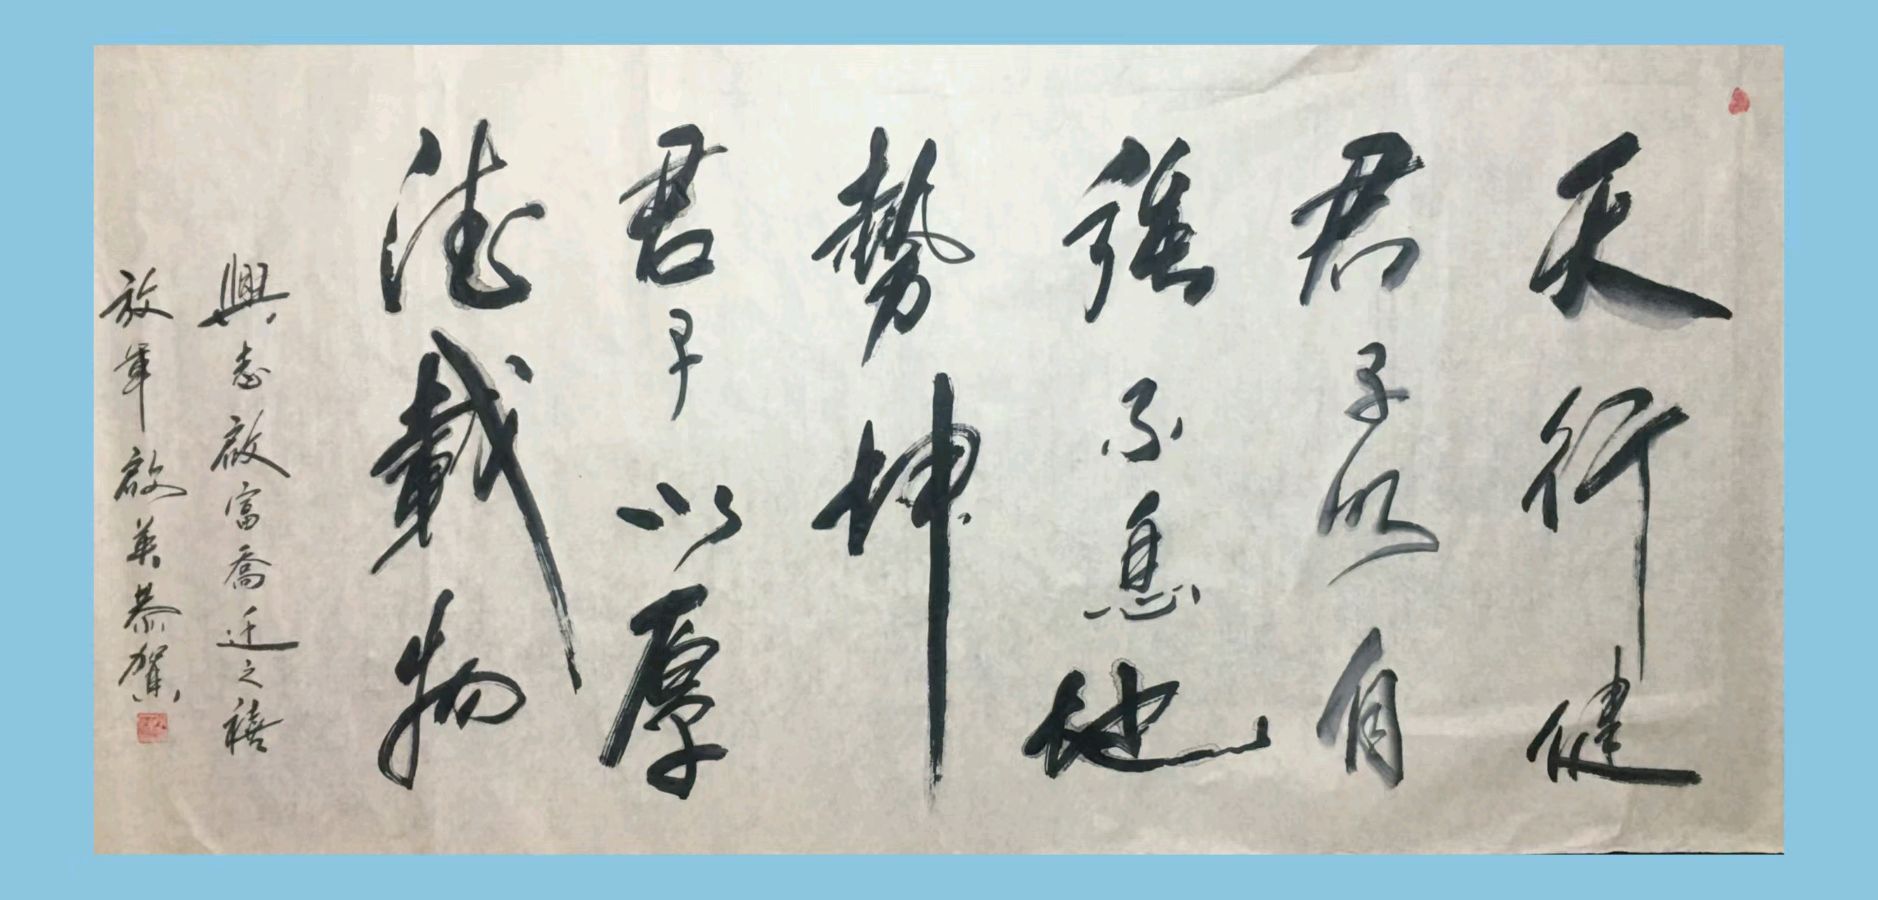 天行健
君子以自
強不息地
勢坤
君子以厚
德載物
興志啟富喬迁之禧
放軍啟英恭賀